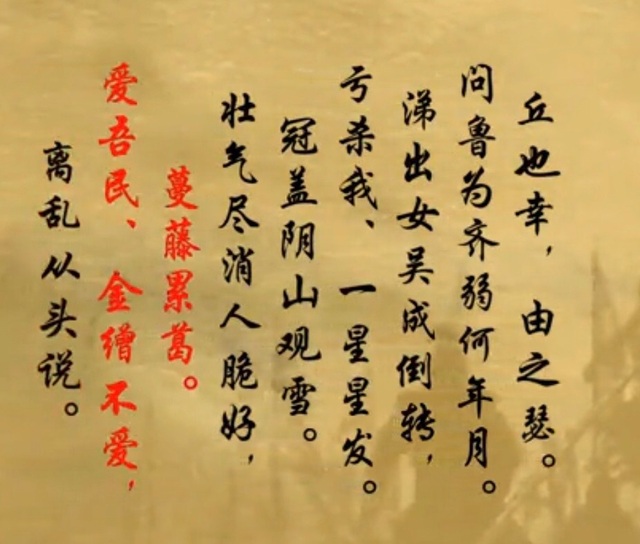 离乱从头说。
爱吾民、金缯不爱，
蔓藤累葛。
壮气尽消人脆好，
冠盖阴山观雪。
亏杀我、一星星发。
涕出女吴成倒转，
问鲁为齐弱何年月。
丘也幸，由之瑟。